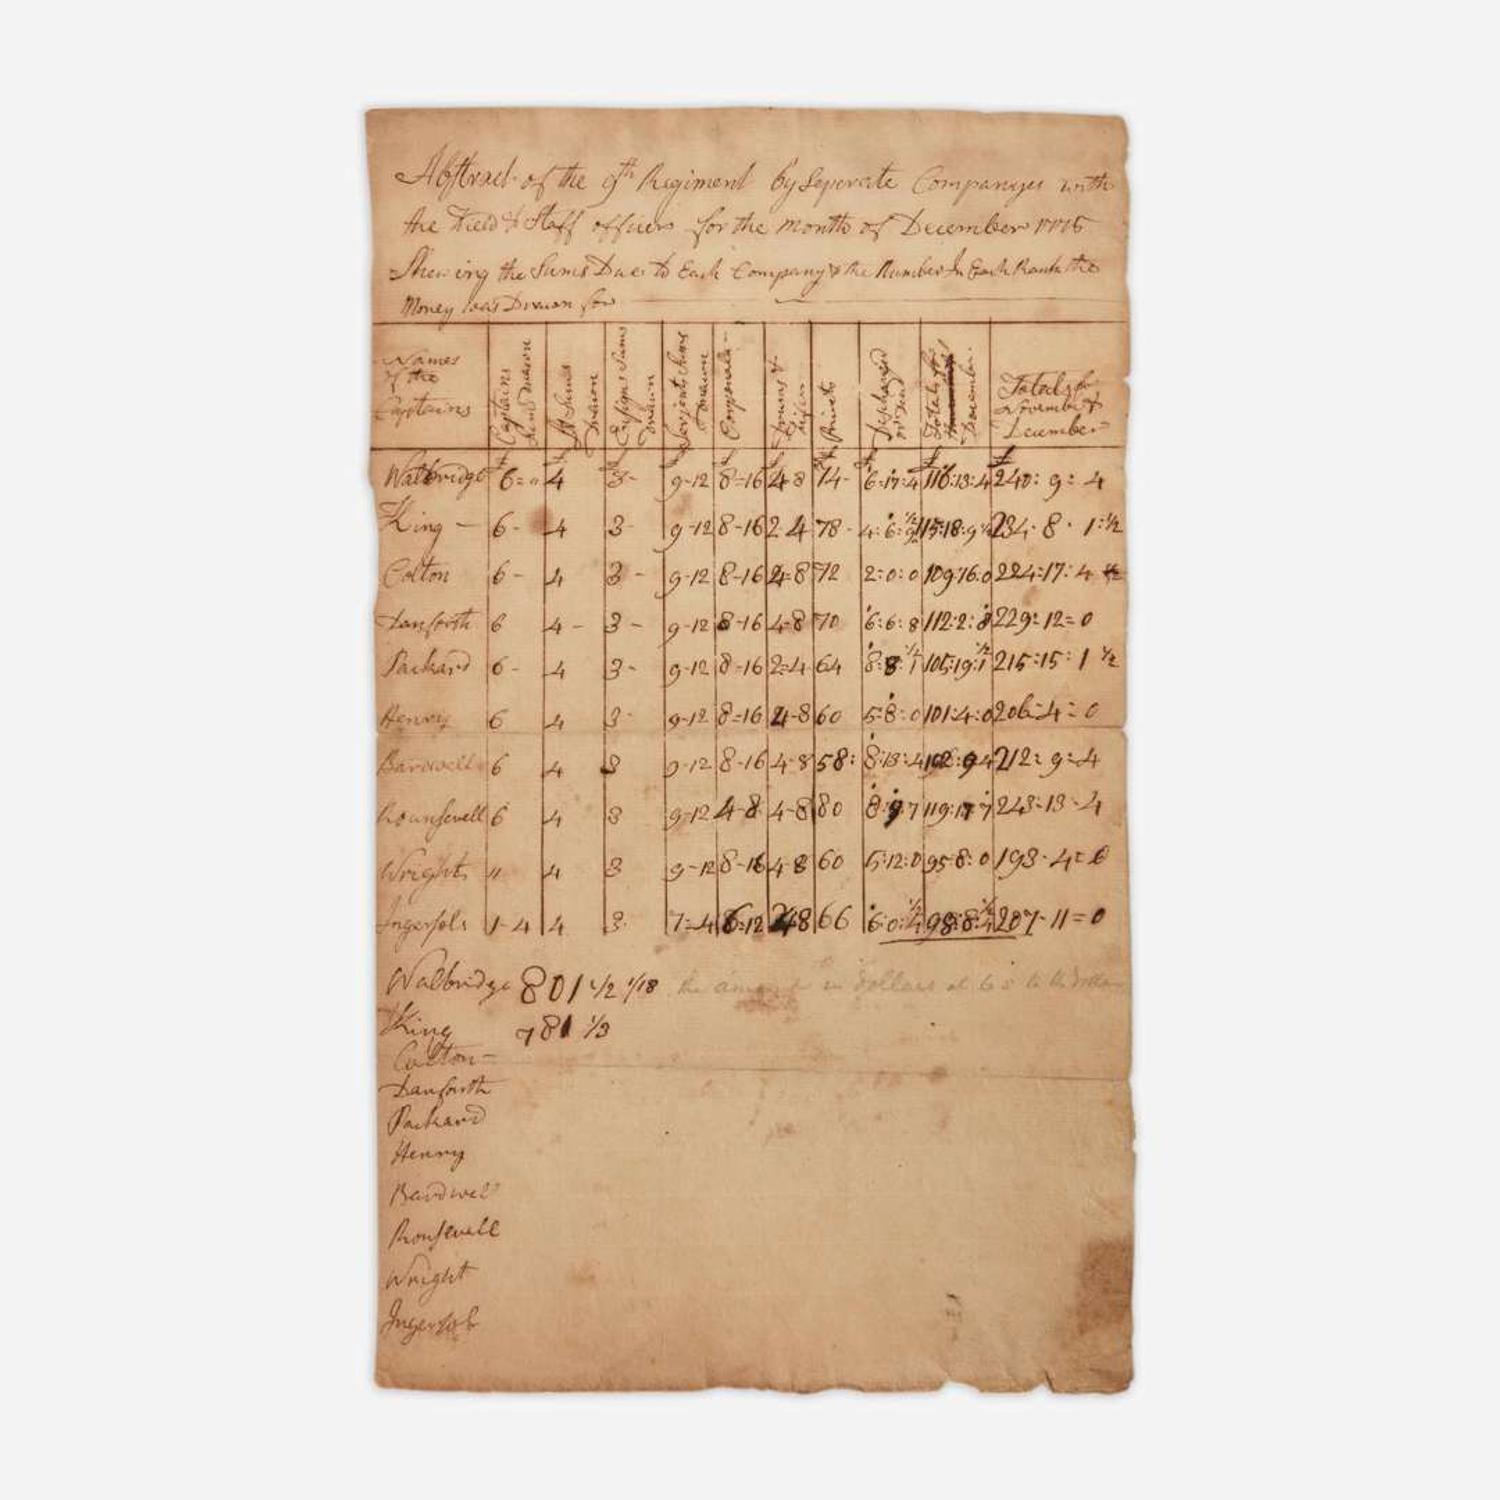 Abstract of the 9th Regiment by Seperate Companyes with
the Field & Staff officers for the month of December 1775
Shewing the Sums Due to Each Company & the Number In Each Rank the
Money was Drawn for
Names of the Captains | Captains Sums Drawn | Lt Sums Drawn | Ensigns Sums Drawn | Serjents Sums Drawn | Corporals | Drums & Fifers | Privets | Discharged or Dead | Totals for December | Totals for November & December
Walbridge 6=" 4 3- 9-12 8-16 4-8 74- 6:17:4 116:13:4 240: 9: 4
King - 6- 4 3- 9-12 8-16 2 4 78- 4:6:9½ 115:18:9½ 234- 8 - 1:½
Colton 6- 4 3- 9-12 8-16 4-8 72 2:0:0 109:16:0 224:17:4
Danforth 6 4- 3- 9-12 8-16 4-8 70 6:6:8 112:2:8 229:12=0
Packard 6- 4 3- 9-12 8-16 2=4 64 8:8:1½ 105:19:1½ 215:15:1 ½
Henry 6 4 3- 9-12 8=16 4-8 60 5-8:0 101:4:0 206:4:0
Bardwell 6 4 3 9-12 8-16 4-8 58: 8:13:4 102:9 4 212: 9:4
Rounsevell 6 4 3 9-12 4-8 4-8 80 8:9 7 119:17 7 243:13-4
Wright " 4 3 9-12 8-16 4-8 60 5:12:0 95:8:0 193-4=0
Ingersols 1-4 4 3- 7=4 6:12 48 66 6:0:½ 98:8: 207-11=0
Walbridge 801 1/2 1/18 the amount in dollars at 6 s to the dollar
King 781 1/3
Colton=
Danforth
Packard
Henry
Bardwell
Rounsevell
Wright
Ingersols